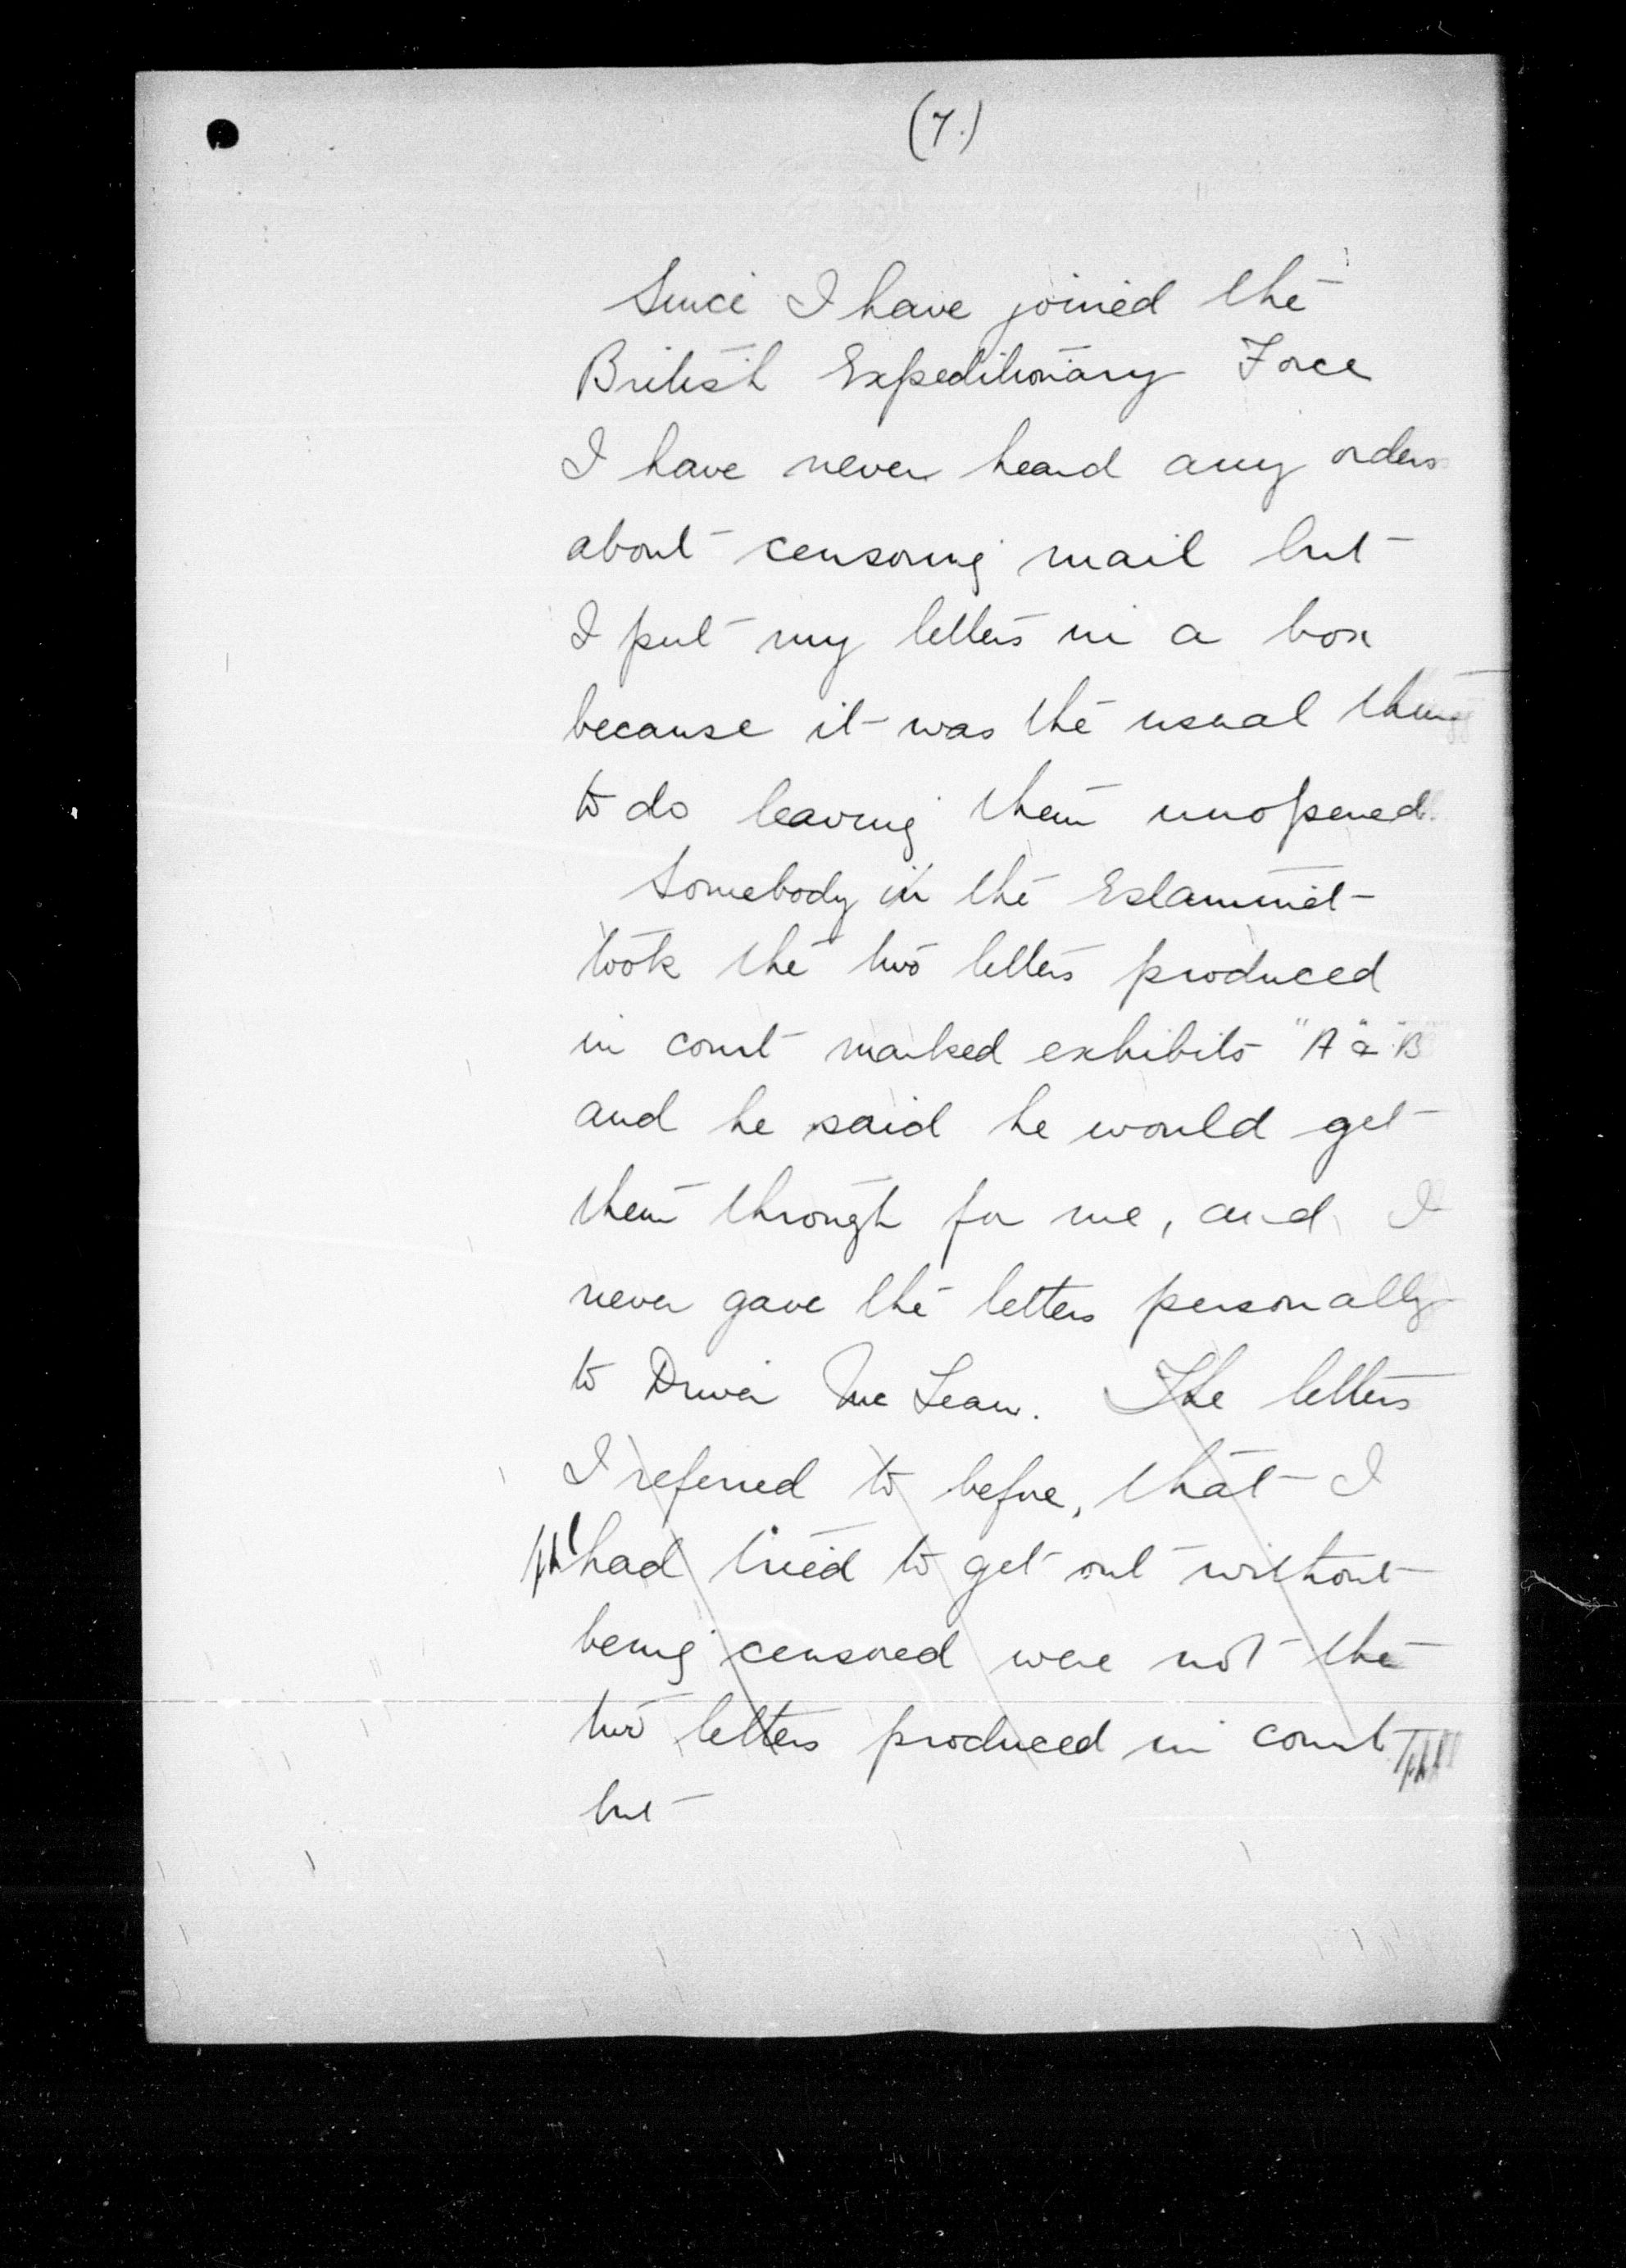 (7.)
Since I have joined the
British Expeditionary Force
I have never heard any orders
about censoring mail but
I put my letters in a box
because it was the usual thing
to do leaving them unopened.
Somebody in the Estaminet
took the two letters produced
in court marked exhibits "A" & "B"
and he said he would get
them through for me, and I
never gave the letters personally
to Driver McLean. The letters
I referred to before, that I
had tried to get out without
being censored were not the
two letters produced in court
but